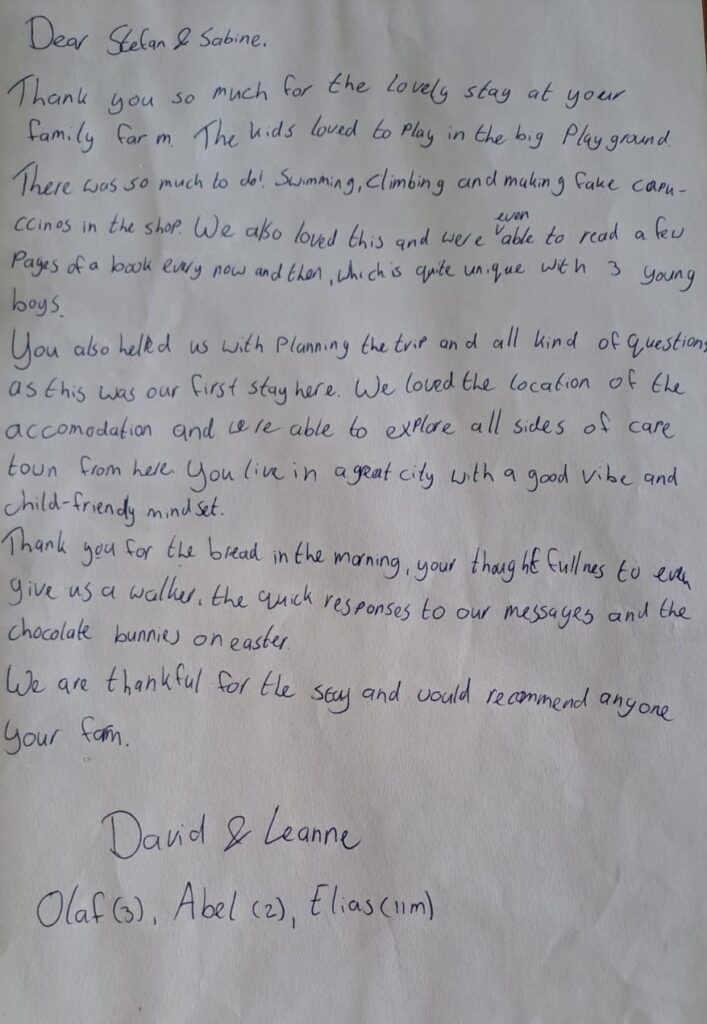 Dear Stefan & Sabine.
Thank you so much for the lovely stay at your
family farm. The kids loved to play in the big Playground.
There was so much to do! Swimming, climbing and making fake capu-
ccinos in the shop. We also loved this and were even able to read a few
Pages of a book every now and then, which is quite unique with 3 young
boys.
You also helped us with Planning the trip and all kind of questions
as this was our first stay here. We loved the location of the
accomodation and were able to explore all sides of care
town from here. You live in a great city with a good vibe and
child-friendly mindset.
Thank you for the bread in the morning, your thoughtfullnes to even
give us a walker, the quick responses to our messages and the
chocolate bunnies on easter.
We are thankful for the stay and would recommend anyone
your farm.
David & Leanne
Olaf (3), Abel (2), Elias (11m)